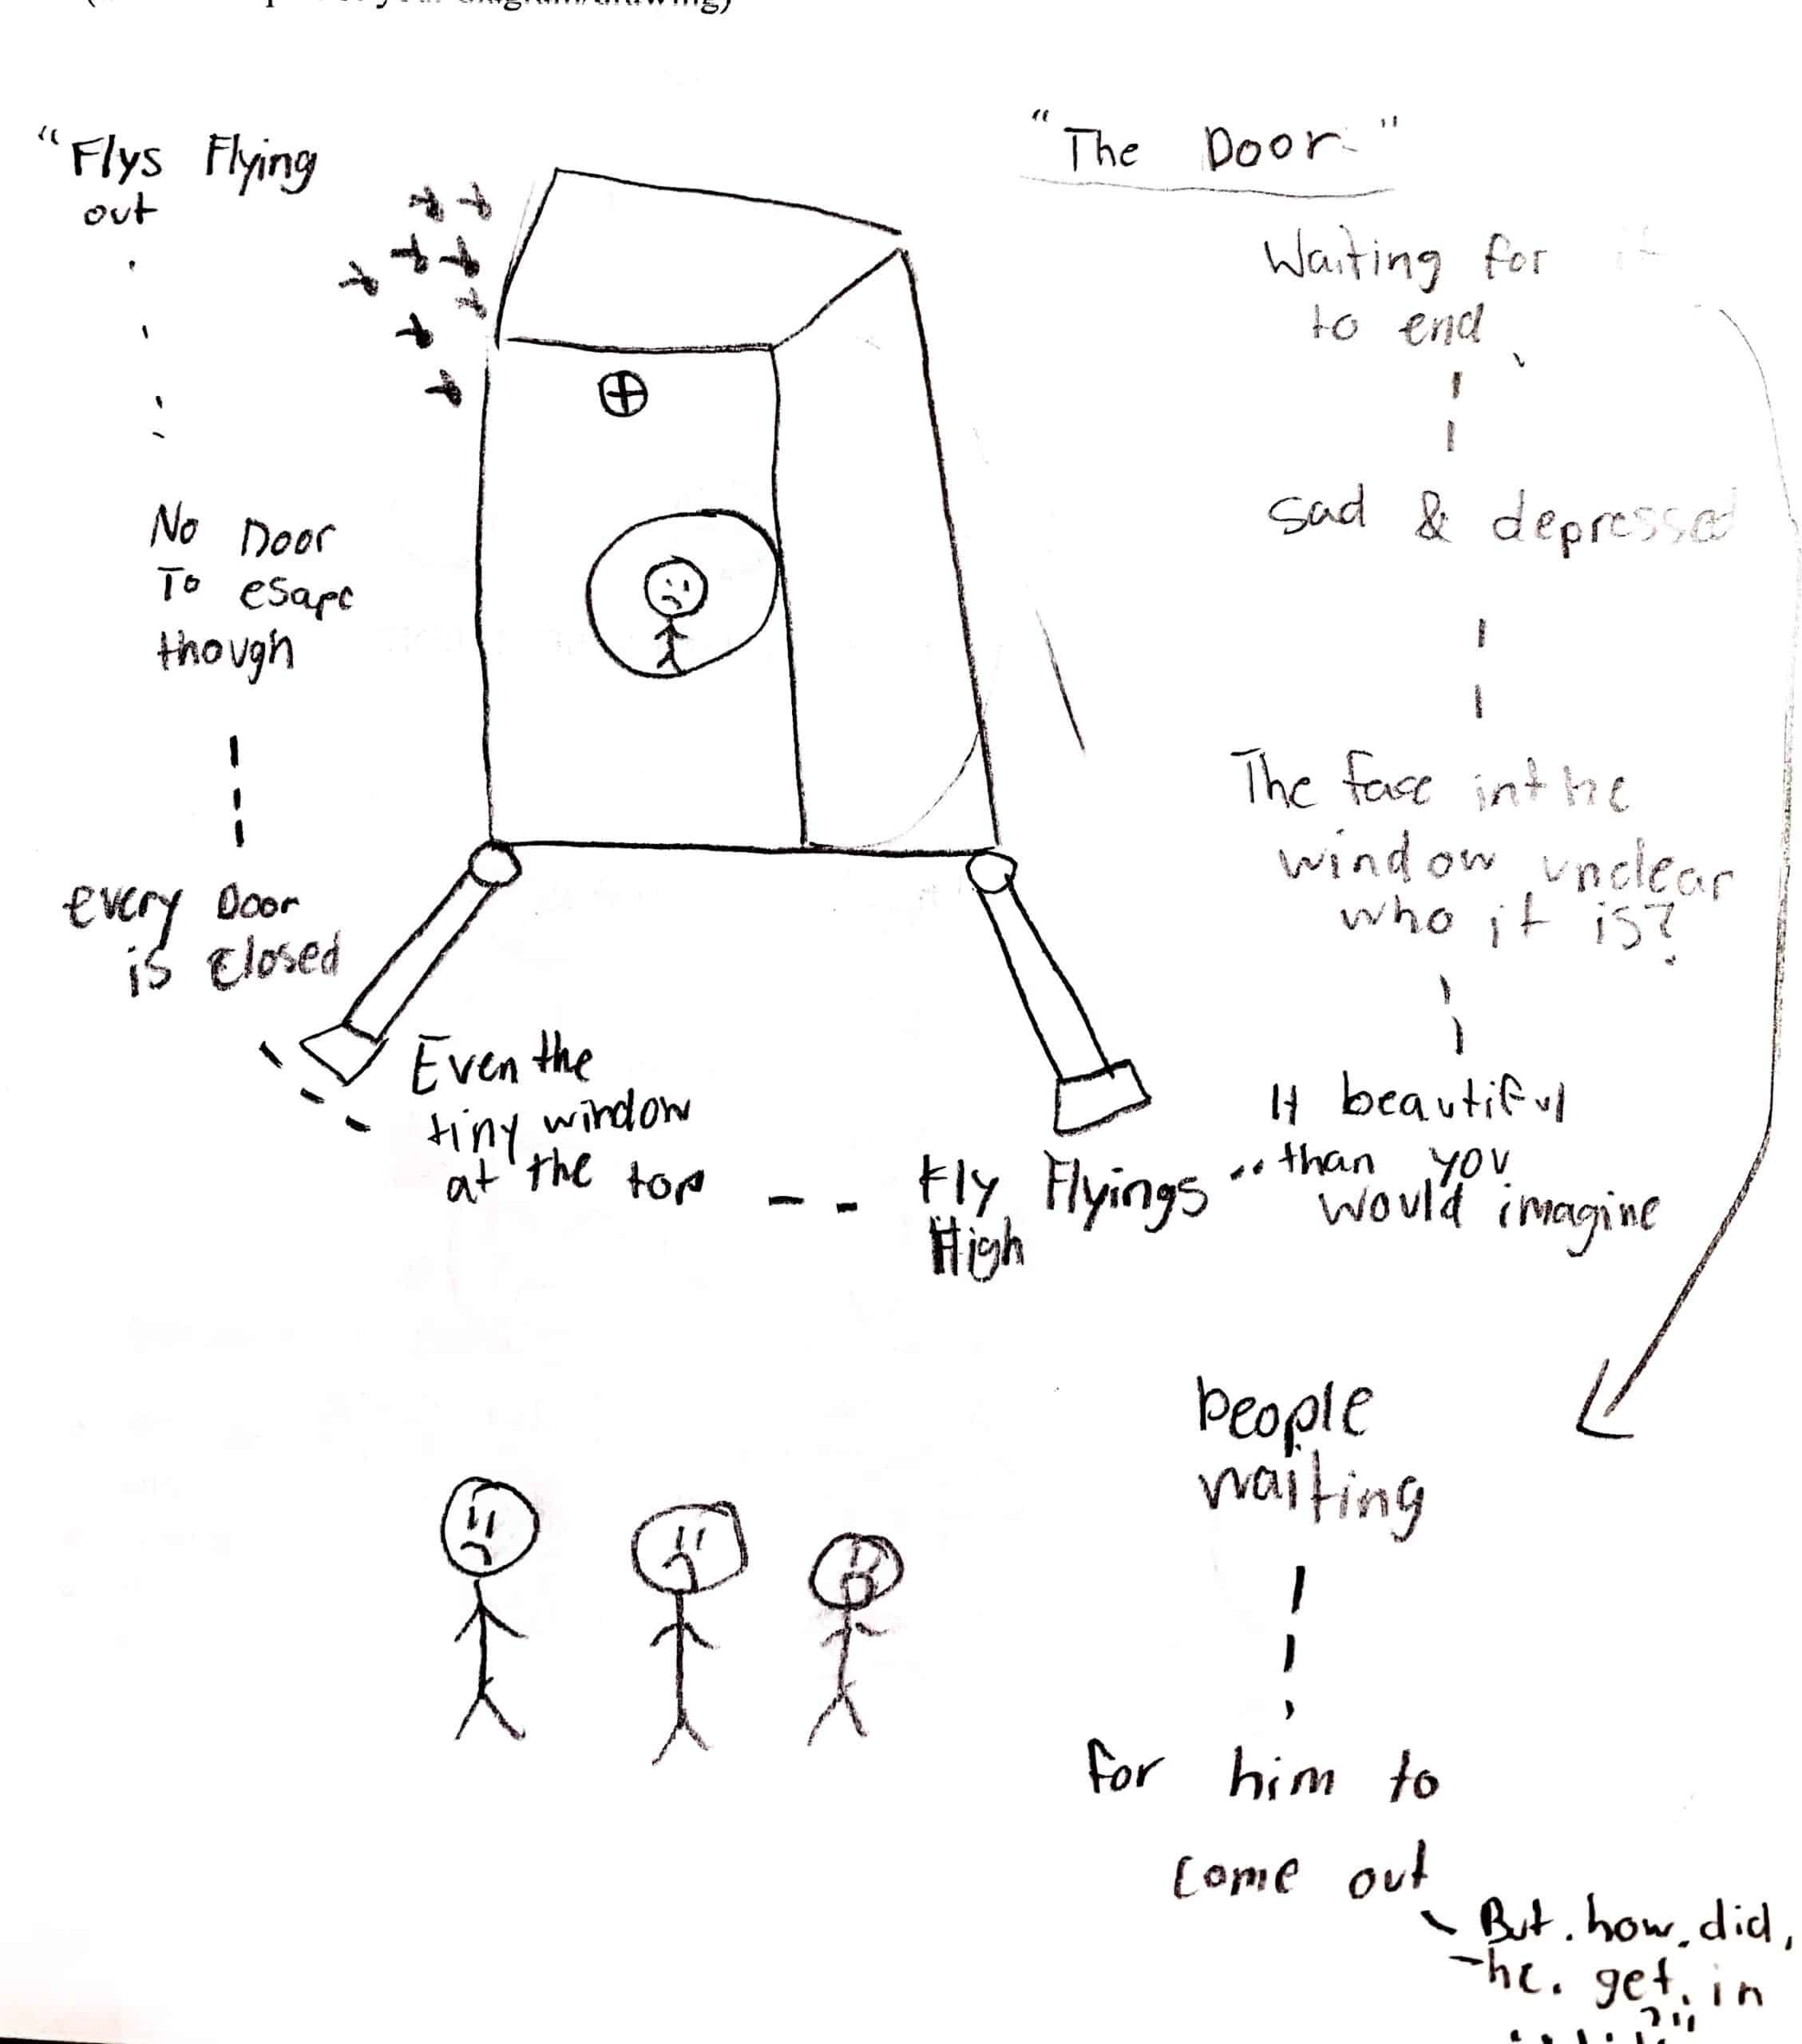 "Flys Flying
out
No Door
To esape
though
every Door
is closed
Even the
tiny window
at the top
Fly Flyings
High
"The Door"
Waiting for it
to end
sad & depressed
The face in the
window unclear
who it is?
It beautiful
than you
would imagine
people
waiting
for him to
come out
But. how. did.
he. get. in
?"